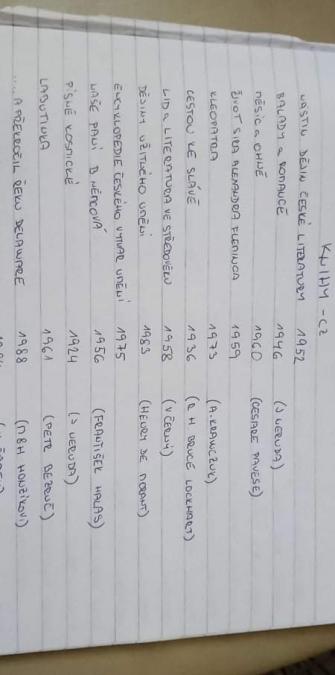 KNIHY - CZ
NÁSTIN DĚJIN ČESKÉ LITERATURY 1952
BALADY A ROMANCE 1946 (J NERUDA)
MĚSÍC A OHNĚ 1960 (CESARE PAVESE)
ŽIVOT SIRA ALEXANDRA FLEMINGA 1959
KLEOPATRA 1973 (A. KRAWCZUK)
CESTOU KE SLÁVĚ 1936 (R H BRUCE LOCKHART)
LID A LITERATURA VE STŘEDOVĚKU 1958 (V ČERNÝ)
DĚJINY UŽITÉHO UMĚNÍ 1983 (HENRY DE MORANT)
ENCYKLOPEDIE ČESKÉHO VÝTVAR. UMĚNÍ 1975
NAŠE PANÍ B NĚMCOVÁ 1956 (FRANTIŠEK HALAS)
PÍSNĚ KOSMICKÉ 1924 (J NERUDA)
LABUTINKA 1961 (PETR BEZRUČ)
.... A PŘEKROČIL ŘEKU DELAWARE 1988 (M B H HOWŽÍKOVI)